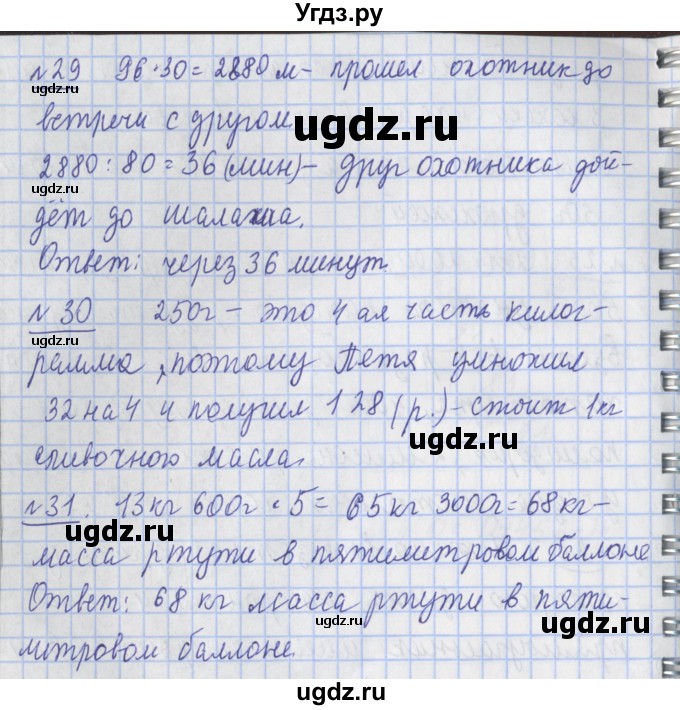 Угдз.ру
№29 96·30=2880 м- прошел охотник до
ugdz.ru
встречи с другом.
ugdz.ru
ugdz.ru
2880:80=36(мин)- друг охотника дой-
дёт до шалаша.
ugdz.ru
Ответ: через 36 минут.
№30 250г - это 4 ая часть килог-
ugdz.ru
рамма, поэтому Петя умножил
32 на 4 и получил 128 (р.)- стоит 1кг
ugdz.ru
сливочного масла.
№31. 13кг 600г · 5 = 65кг 3000г = 68кг-
ugdz.ru
масса ртути в пятилитровом баллоне
ugdz.ru
Ответ: 68 кг масса ртути в пяти-
ugdz.ru
литровом баллоне.
ugdz.ru
ugdz.ru